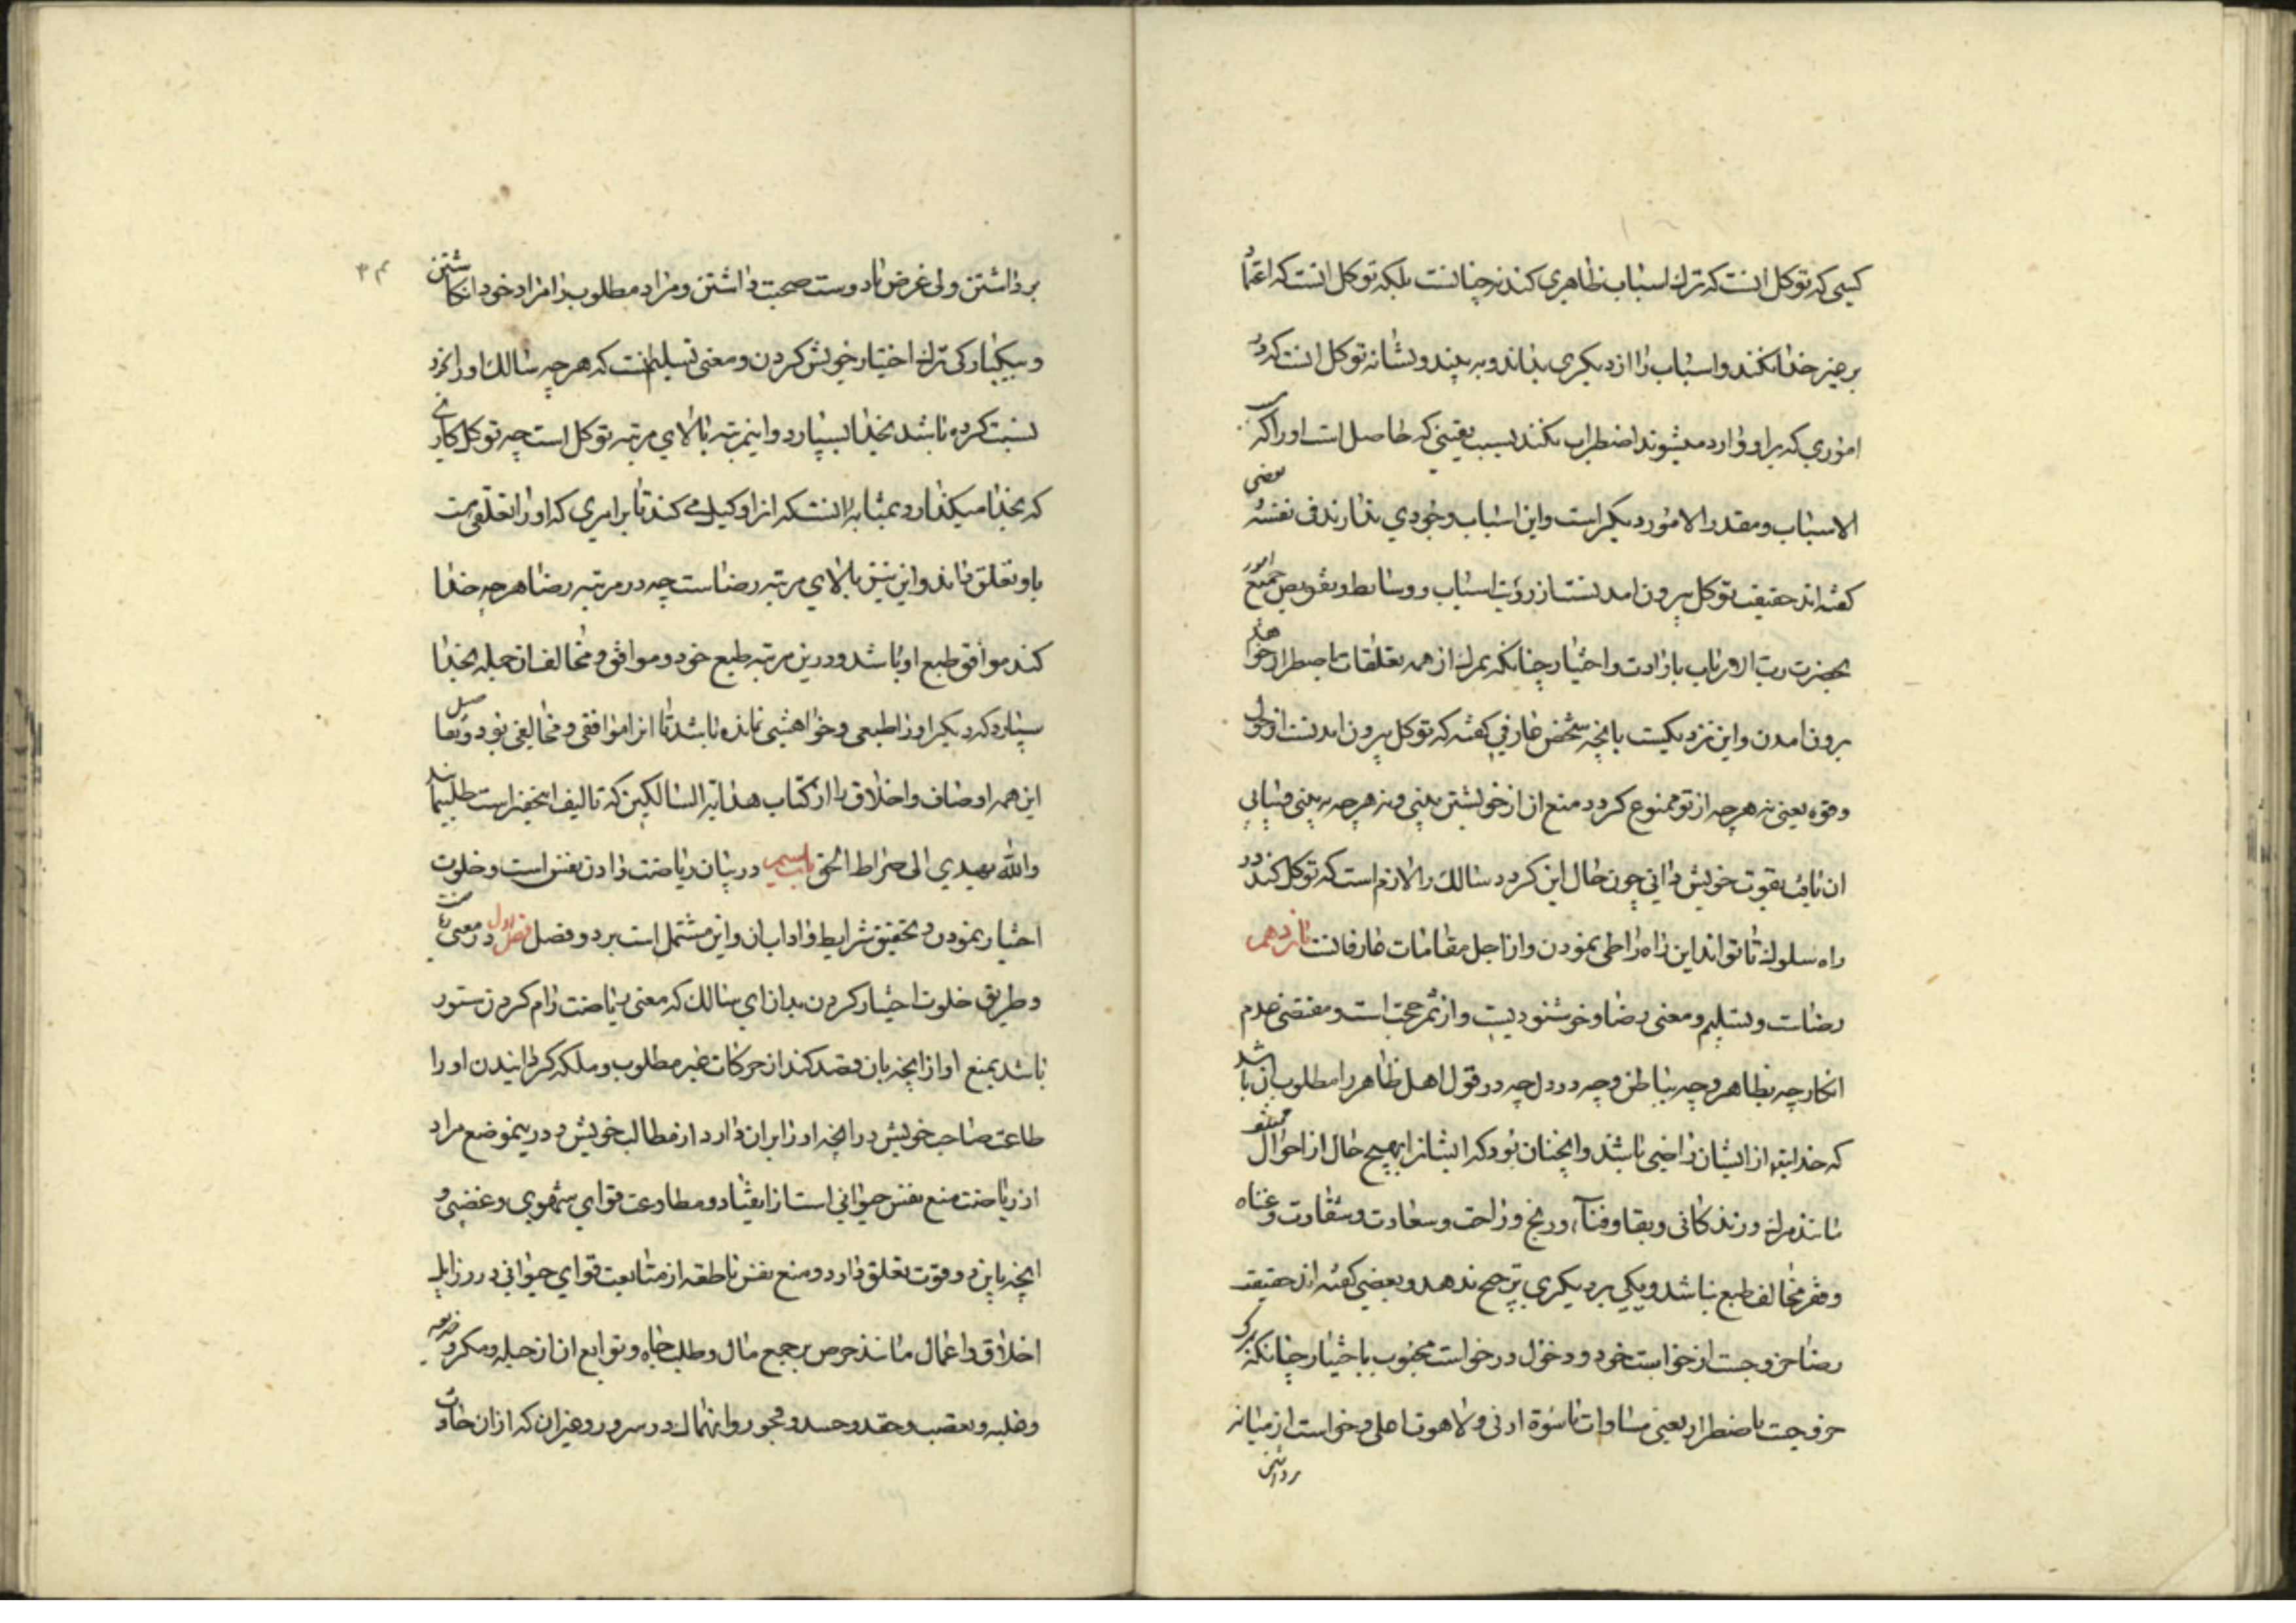 کسی که توکل انست که ترک اسباب ظاهری کند نه چنانست بلکه توکل انست که اعتماد
بر غیر خدا نکند و اسباب را از دیکری بداند و به بیند و نشانه توکل انست که در
اموری که بر او وارد میشوند اضطراب نکند بسبب یقینی که حاصل است او را که
الاسباب و مقدر الامور دیکر است و این اسباب وجودی ندارند فی نفسه بعضی
کفته اند حقیقت توکل بیرون امدنست از رؤیت اسباب و وسایط و تفویض جمیع امور
بحضرت رب الارباب بارادت و اختیار چنانکه بمرک از همه تعلقات باضطرار خواهد
برون امدن و این نزدیکست بانچه شخص عارفی کفته که توکل بیرون امدنست از حول
و قوه یعنی نه هرچه از تو ممنوع کردد منع ان از خویشتن بینی و نه هرچه به بینی و بیابی
ان یافت بقوت خویش دانی چون حال این کردد سالک را لازم است که توکل کند در
راه سلوک تا تواند این راه را طی نمودن و از اجل مقامات عارفانست یازدهم
رضاست و تسلیم و معنی رضا و خوشنودیست و از ثمر محبت است و مقتضی عدم
انکار چه بظاهر و چه بباطن و چه در دل چه در قول اهل ظاهر را مطلوب ان باشد
که خدایتع از ایشان راضی باشد و انچنان بود که ایشانرا بهیچ حال از احوال
مانند مرک و زندکانی و بقا و فناء و رنج و راحت و سعادت و شقاوت و غناه
و فقر مخالف طبع نباشد و یکی بر دیکری ترجیح ندهد و بعضی کفته اند حقیقت
رضا خروجست از خواست خود و دخول در خواست محبوب باختیار چنانکه بمرک
خروجست باضطرار یعنی مساوات ناسوة ادنی و لاهوت اعلی و خواست از میانه
برداشتن
۳۴
برداشتن و بی غرض با دوست صحبت داشتن و مراد مطلوب را مراد خود انکاشتن
و بیکبارکی ترک اختیار خویش کردن و معنی تسلیم انست که هرچه سالک او را بخود
نسبت کرده باشد بخدا بسپارد و اینمرتبه بالای مرتبه توکل است چه توکل کاری
که بخدا میکذارد بمثابه انست که او را وکیل می کند تا بر امری که او را تعلقی هست
باو تعلق داند و این نیز بالای مرتبه رضاست چه در مرتبه رضا هرچه خدا
کند موافق طبع او باشد و درین مرتبه طبع خود و موافق و مخالف ان جمله بخدا
سپارد که دیکر او را طبعی و خواهشی نمانده باشد تا انرا موافقی و مخالفی بود و تفاصیل
این همه اوصاف و اخلاق را از کتاب هدایة السالکین که تالیف اینحقیر است طلب نمایند
والله یهدی الی صراط الحق باب سیم در بیان ریاضت دادن نفس است و خلوت
اختیار نمودن و تحقیق شرایط و اداب ان و این مشتمل است بر دو فصل فصل اول در معنی ریاضت
و طریق خلوت اختیار کردن بدان ای سالک که معنی ریاضت رام کردن ستور
باشد بمنع او از انچه بان قصد کند از حرکات غیر مطلوب و ملکه کردانیدن او را
طاعت صاحب خویش در انچه او را بران دارد از مطالب خویش و درینموضع مراد
از ریاضت منع نفس حیوانی است از انقیاد و مطاوعت قوای شهوی و غضبی و
انچه باین دو قوت تعلق دارد و منع نفس ناطقه از متابعت قوای حیوانی در رزایل
اخلاق و اعمال مانند حرص بر جمع مال و طلب جاه و توابع ان از حیله و مکر و خدعه
و غلبه و تعصب و حقد و حسد و فجور و انهماک در سرور و غیران که از ان حادث